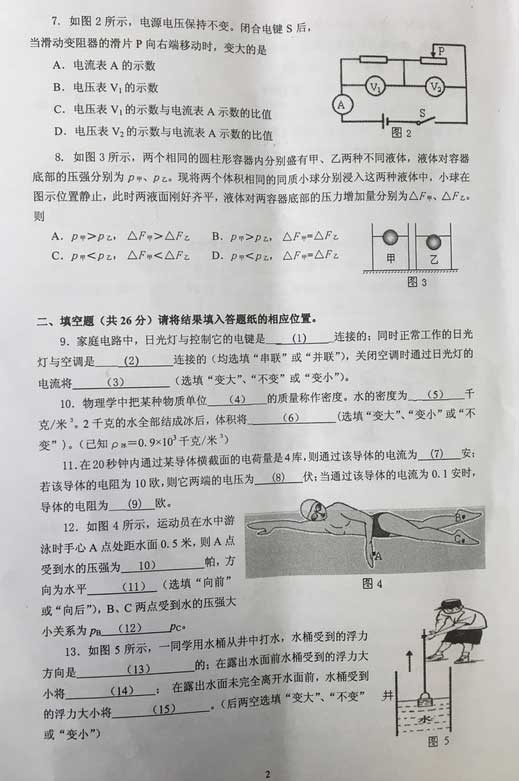 7. 如图 2 所示，电源电压保持不变。闭合电键 S 后，
当滑动变阻器的滑片 P 向右端移动时，变大的是
A. 电流表 A 的示数
B. 电压表 V₁ 的示数
C. 电压表 V₁ 的示数与电流表 A 示数的比值
D. 电压表 V₂ 的示数与电流表 A 示数的比值
P
V₁
V₂
A
S
图 2
8. 如图 3 所示，两个相同的圆柱形容器内分别盛有甲、乙两种不同液体，液体对容器
底部的压强分别为 p甲、p乙。现将两个体积相同的同质小球分别浸入这两种液体中，小球在
图示位置静止，此时两液面刚好齐平，液体对两容器底部的压力增加量分别为△F甲、△F乙。
则
A. p甲>p乙，△F甲>△F乙 B. p甲>p乙，△F甲=△F乙
C. p甲<p乙，△F甲<△F乙 D. p甲<p乙，△F甲=△F乙
甲 乙
图 3
二、填空题（共 26 分）请将结果填入答题纸的相应位置。
9. 家庭电路中，日光灯与控制它的电键是 (1) 连接的；同时正常工作的日光
灯与空调是 (2) 连接的（均选填“串联”或“并联”），关闭空调时通过日光灯的
电流将 (3) （选填“变大”、“不变”或“变小”）。
10. 物理学中把某种物质单位 (4) 的质量称作密度。水的密度为 (5) 千
克/米³。2 千克的水全部结成冰后，体积将 (6) （选填“变大”、“变小”或“不
变”）。（已知 ρ冰=0.9×10³ 千克/米³）
11. 在 20 秒钟内通过某导体横截面的电荷量是 4 库，则通过该导体的电流为 (7) 安；
若该导体的电阻为 10 欧，则它两端的电压为 (8) 伏；当通过该导体的电流为 0.1 安时，
导体的电阻为 (9) 欧。
12. 如图 4 所示，运动员在水中游
泳时手心 A 点处距水面 0.5 米，则 A 点
受到水的压强为 10) 帕，方
向为水平 (11) （选填“向前”
或“向后”），B、C 两点受到水的压强大
小关系为 pB (12) pC。
B
C
A
图 4
13. 如图 5 所示，一同学用水桶从井中打水，水桶受到的浮力
方向是 (13) 的；在露出水面前水桶受到的浮力大
小将 (14) ；在露出水面未完全离开水面前，水桶受到
的浮力大小将 (15) 。（后两空选填“变大”、“不变”
或“变小”）
井
水
图 5
2